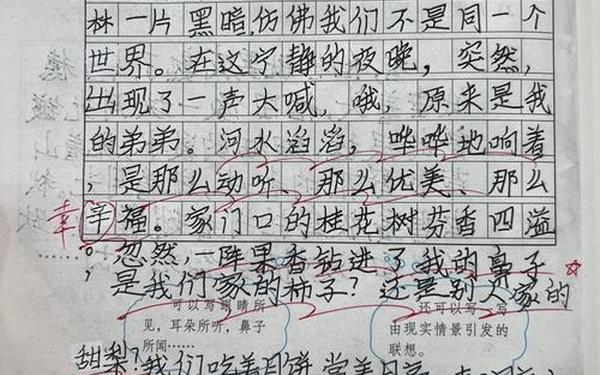 林一片黑暗,仿佛我们不是同一个
世界。在这宁静的夜晚，突然，
出现了一声大喊，哦，原来是我
的弟弟。河水滔滔，哗哗地响着
，是那么动听、那么优美、那么
幸
辛福。家门口的桂花树芬香四溢
。忽然,一阵果香钻进了我的鼻子
，是我们家的柿子？还是别人家的
可以写眼睛所
见，耳朵所听，鼻子
所闻……
还可以写
写
由现实情景引发的
联想。
甜梨?我们吃着月饼,赏着月亮,